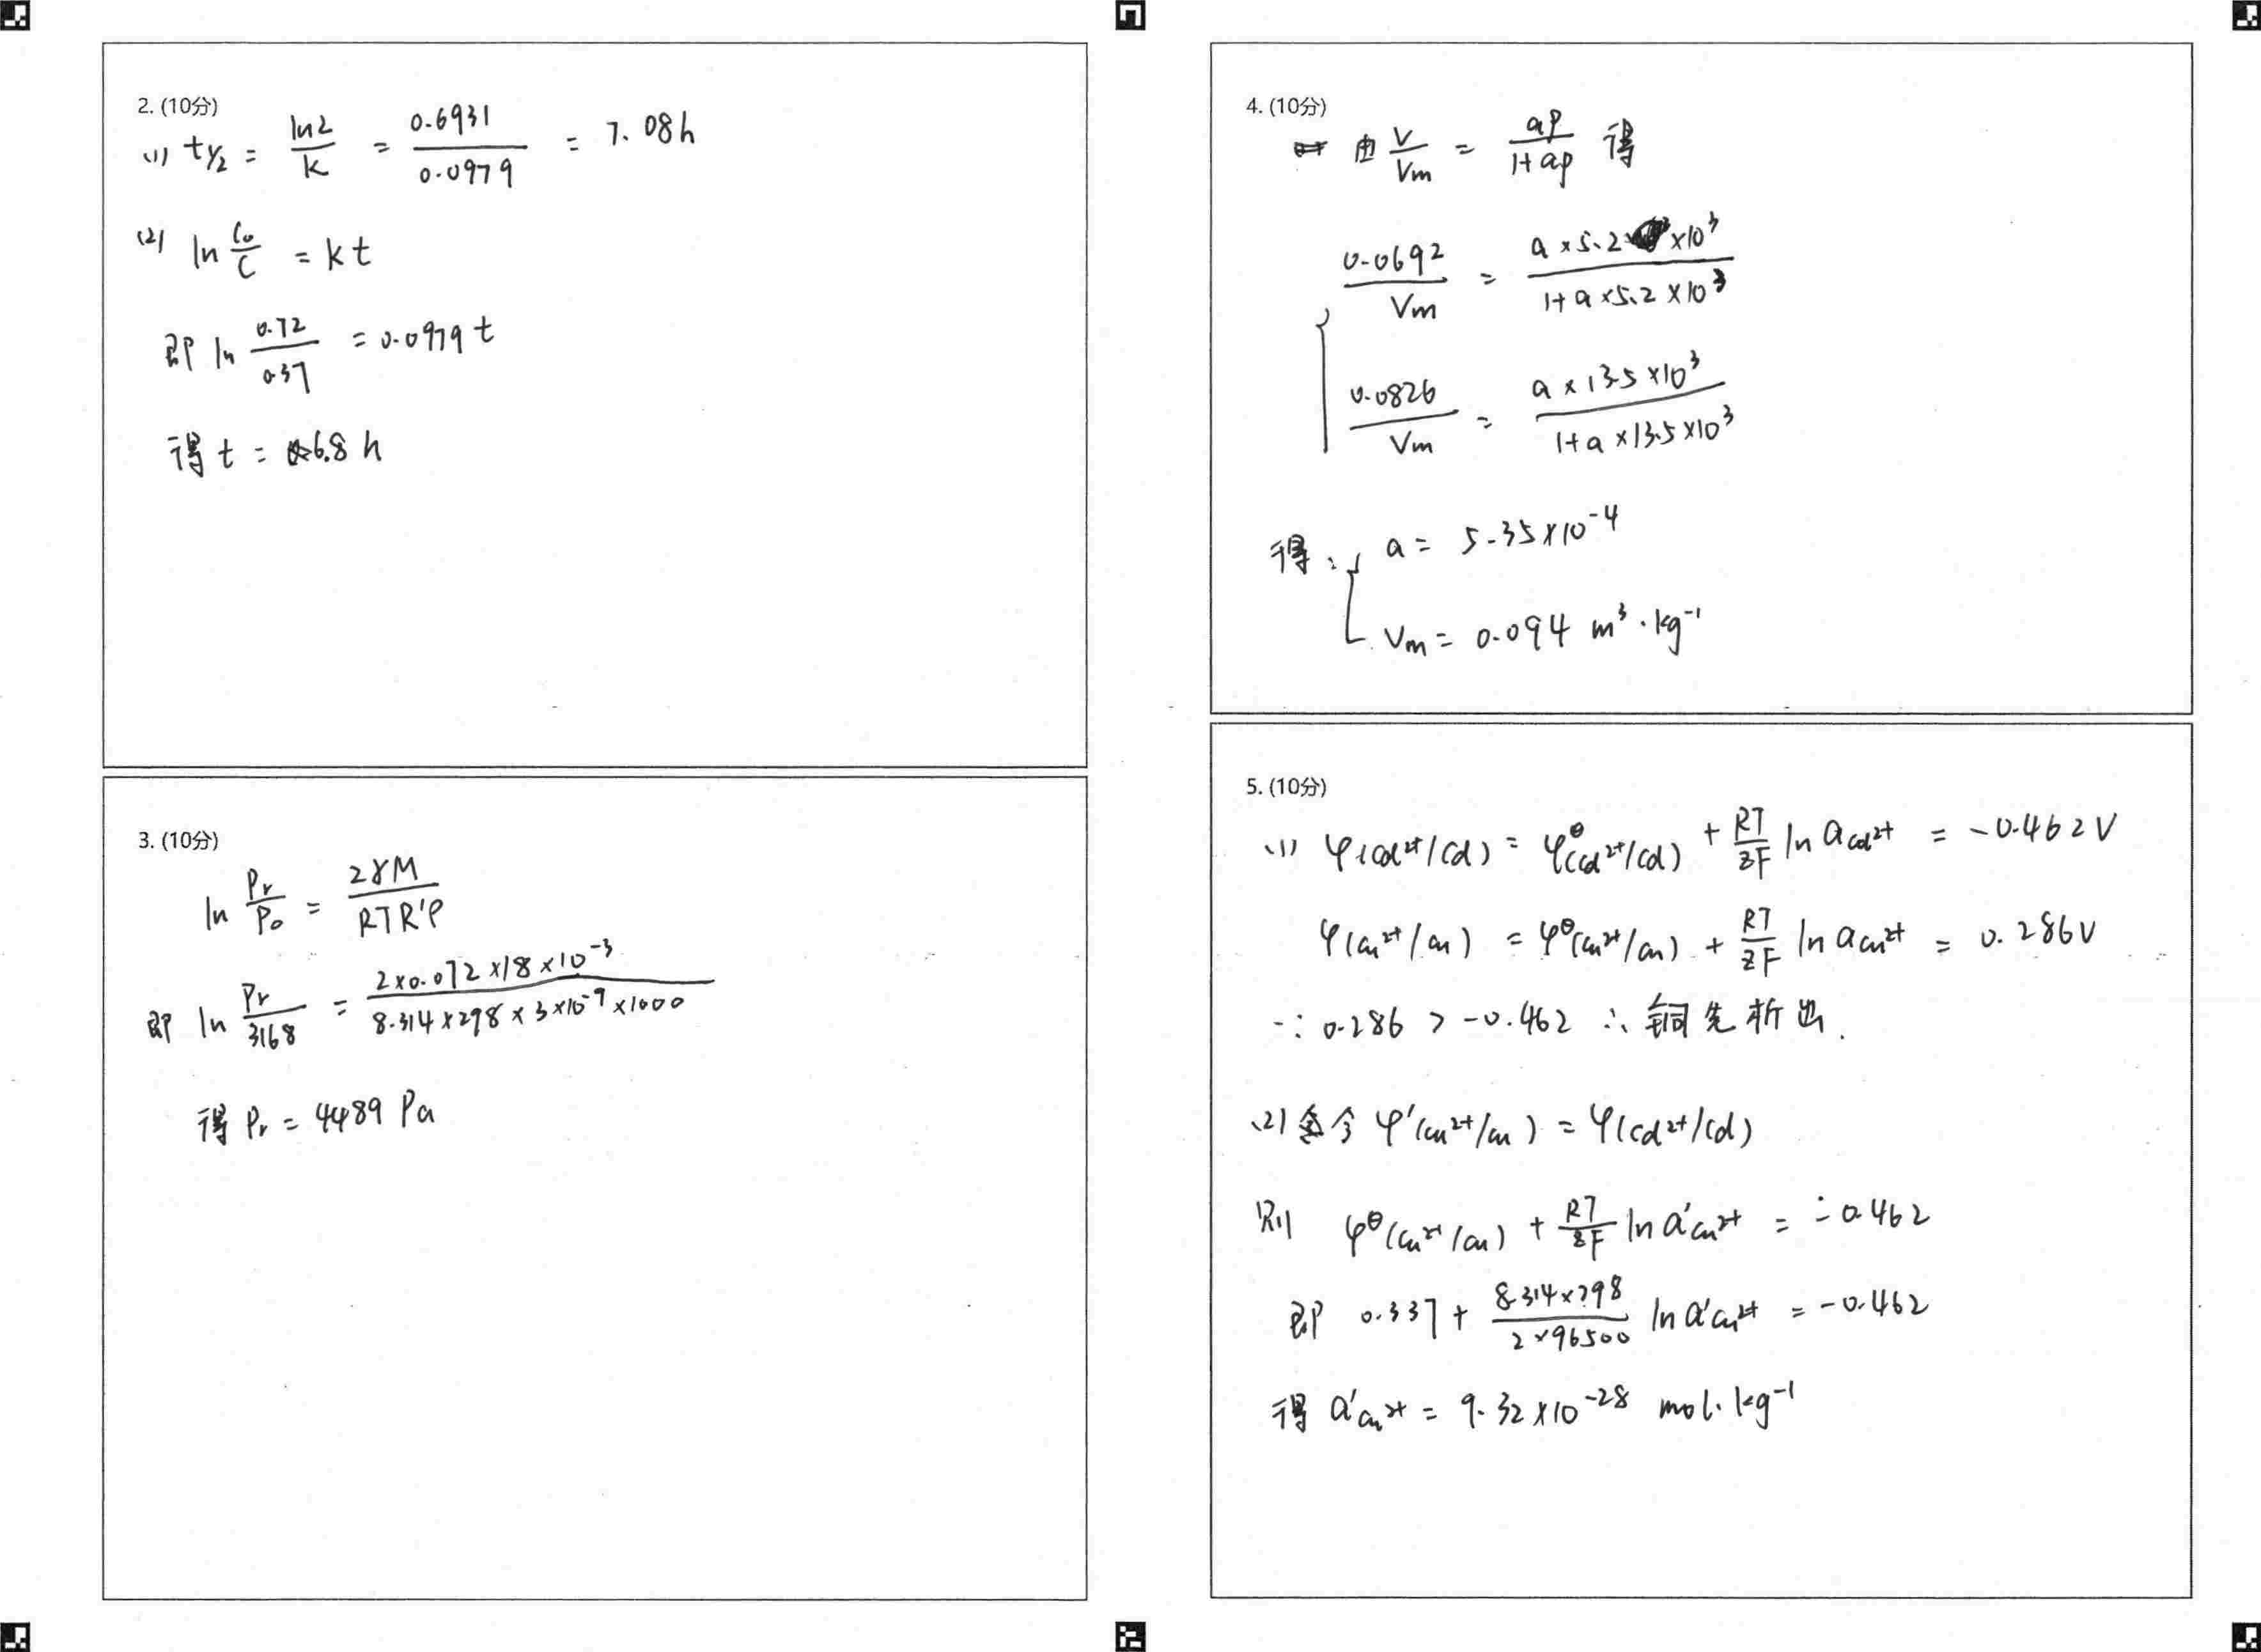 2. (10分)
(1) t½ = ln2/k = 0.6931/0.0979 = 7.08h
(2) ln C₀/C = kt
即 ln 0.72/0.37 = 0.0979 t
得 t = 6.8 h
3. (10分)
ln Pr/P₀ = 2γM/RTR'ρ
即 ln Pr/3168 = 2×0.072×18×10⁻³/8.314×298×3×10⁻⁹×1000
得 Pr = 4489 Pa
4. (10分)
由 V/Vm = aP/1+ap 得
0.0692/Vm = a×5.2×10³/1+a×5.2×10³
0.0826/Vm = a×13.5×10³/1+a×13.5×10³
得: a = 5.35×10⁻⁴
Vm = 0.094 m³·kg⁻¹
5. (10分)
(1) φ(Cd²⁺/Cd) = φ^θ(Cd²⁺/Cd) + RT/zF ln a Cd²⁺ = -0.462V
φ(Cu²⁺/Cu) = φ^θ(Cu²⁺/Cu) + RT/zF ln a Cu²⁺ = 0.286V
∵ 0.286 > -0.462 ∴ 铜先析出.
(2) 令 φ'(Cu²⁺/Cu) = φ(Cd²⁺/Cd)
则 φ^θ(Cu²⁺/Cu) + RT/zF ln a' Cu²⁺ = -0.462
即 0.337 + 8.314×298/2×96500 ln a' Cu²⁺ = -0.462
得 a' Cu²⁺ = 9.32×10⁻²⁸ mol·kg⁻¹